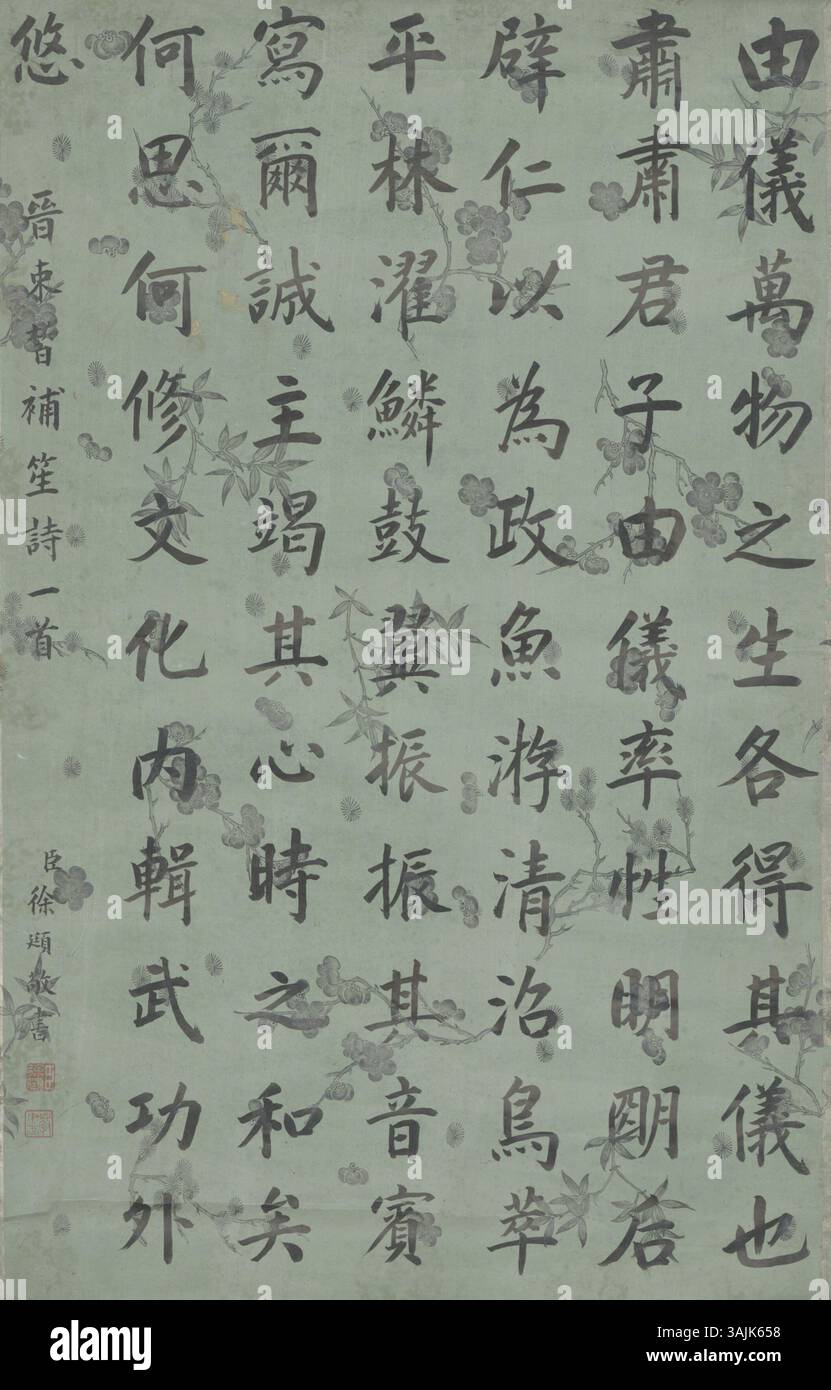 由儀萬物之生各得其儀也
肅肅君子由儀率性眀朙后
辟仁以為政魚游清沼鳥萃
平林濯鱗鼓翼振振其音賓
寫爾誠主竭其心時之和矣
何思何修文化內輯武功外
悠
晉束晳補笙詩一首
臣徐頲敬書
alamy
Image ID: 3AJK658
www.alamy.com